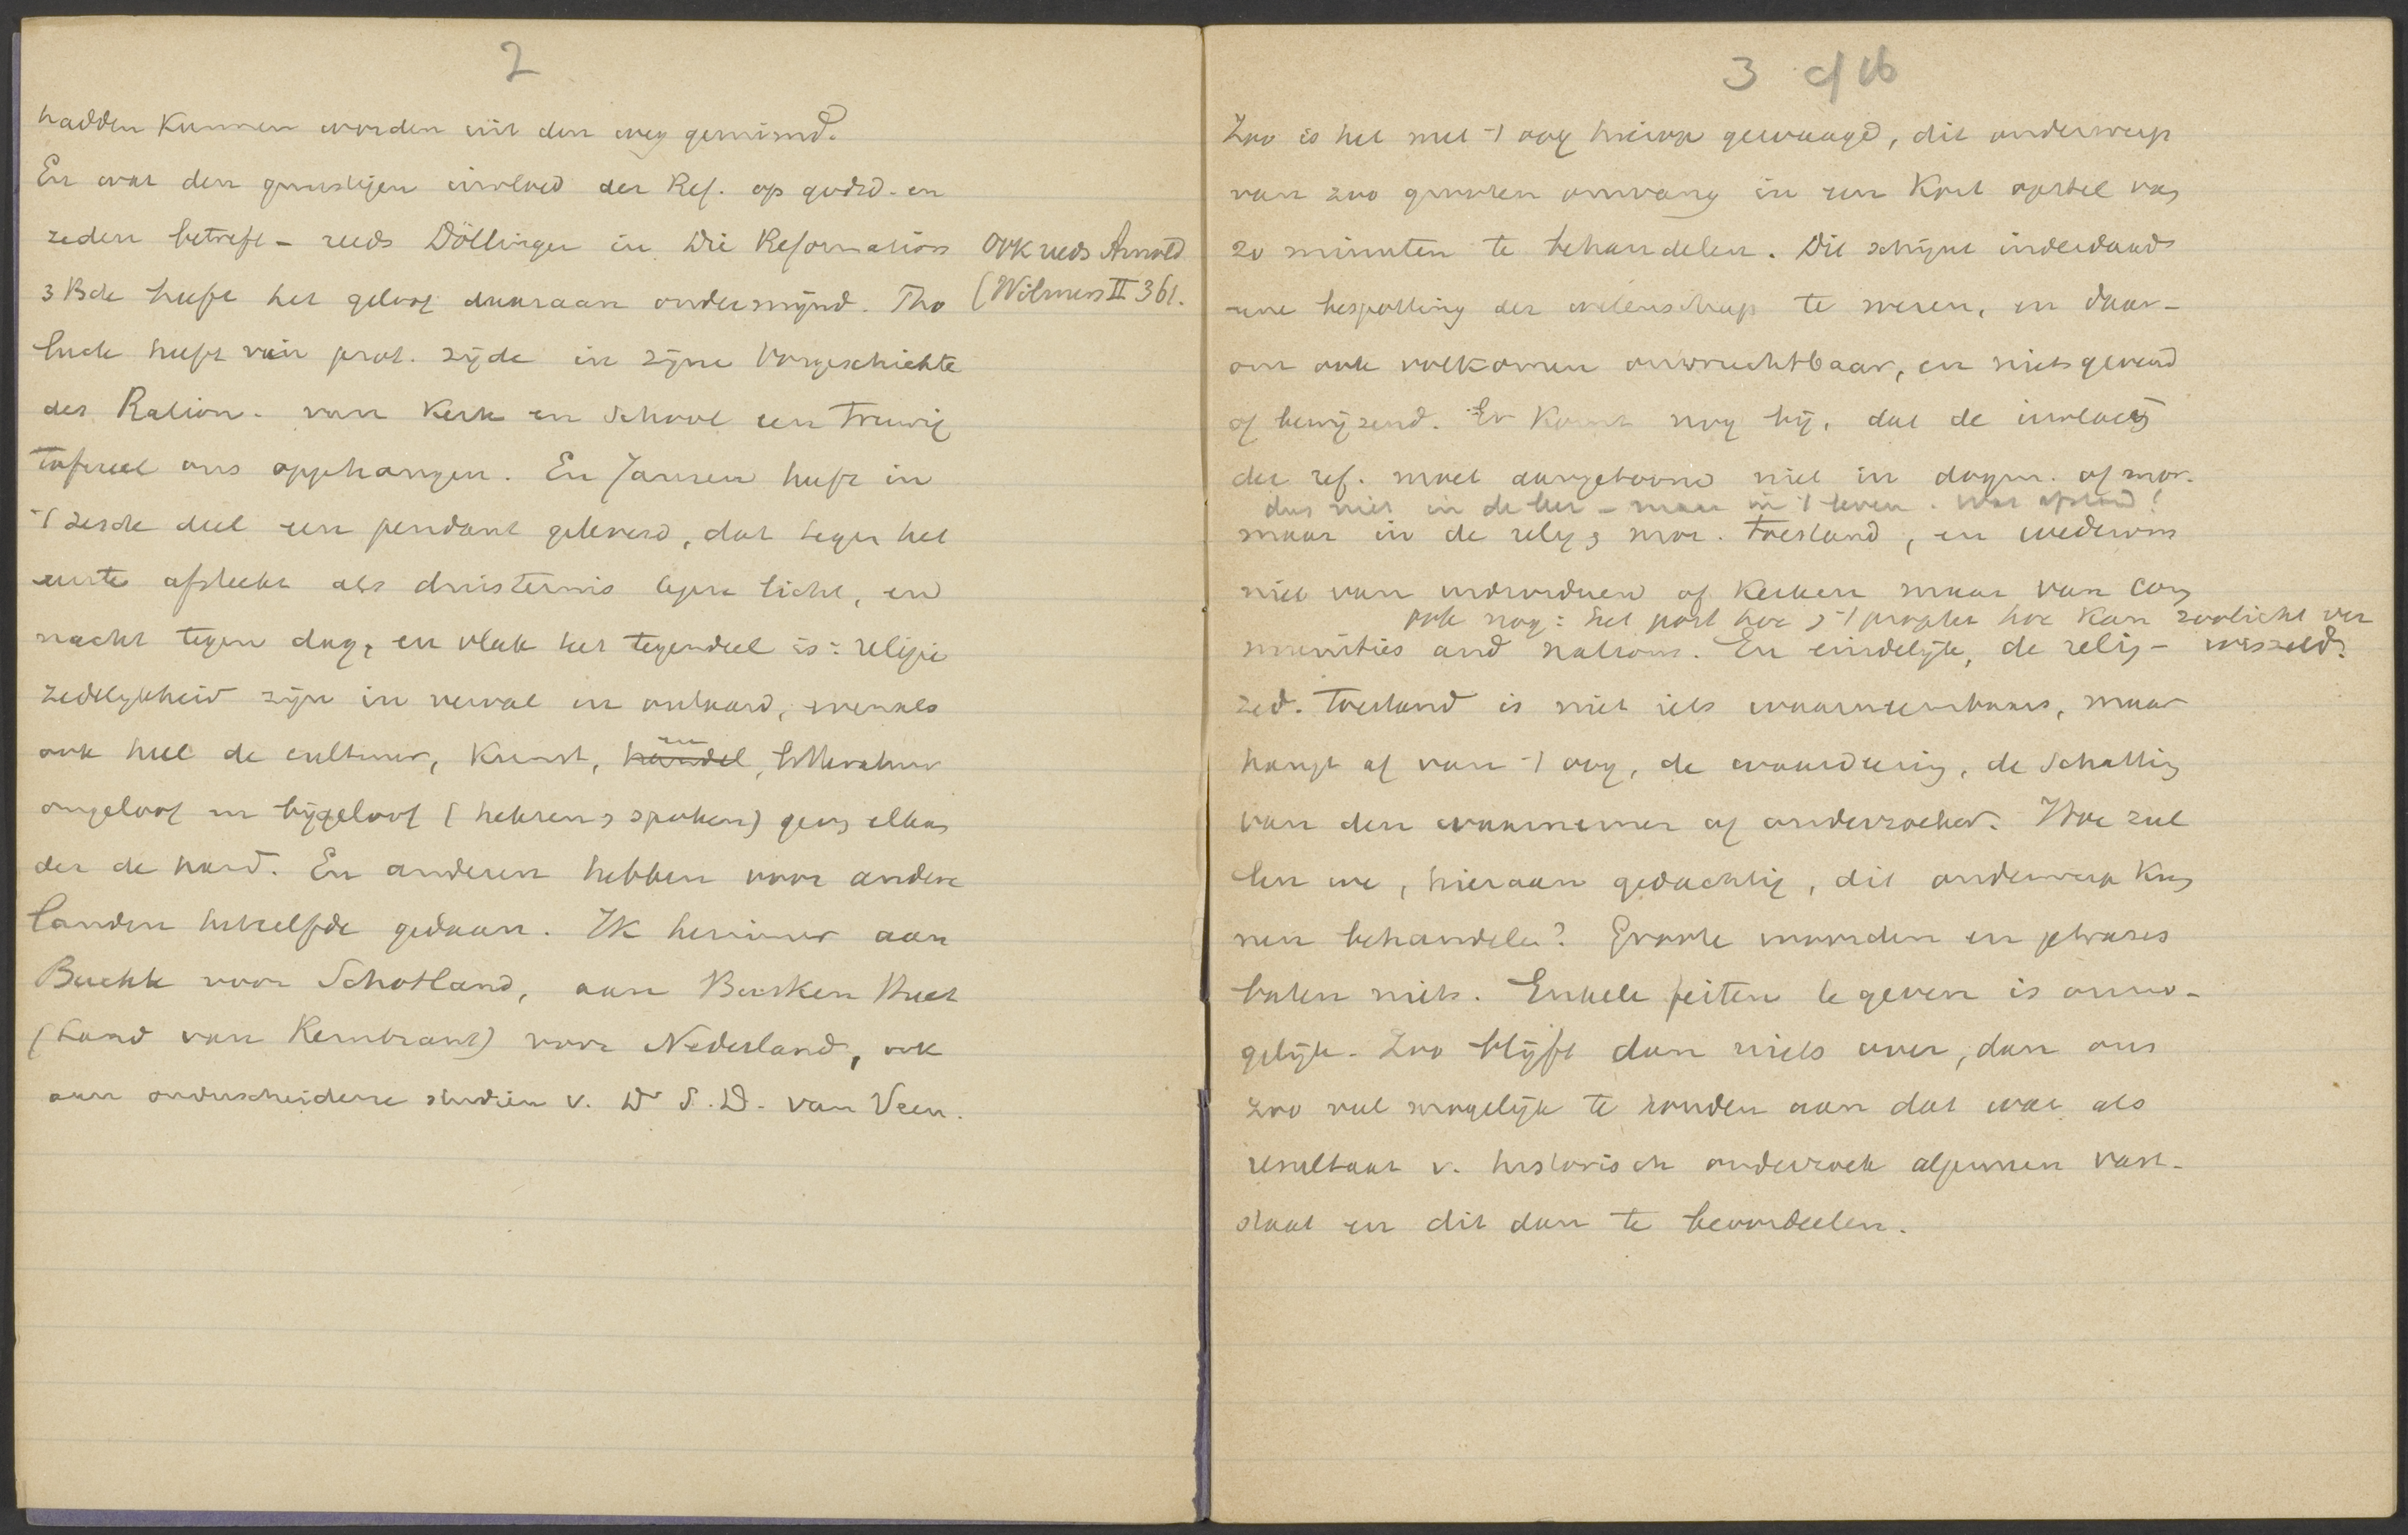 2
hadden kunnen worden uit den weg geruimd.
En wat den gunstigen invloed der Ref. op godsd. en
zeden betreft - reeds Döllinger in Die Reformation
3 Bde heeft het geloof daaraan ondermijnd. Tho
luck heeft van prot. zijde in zijne Vorgeschichte
des Ration. van Kerk en School een treurig
tafereel ons opgehangen. En Janssen heeft in
't zesde deel een pendant geleverd, dat tegen het
eerste afsteekt als duisternis tegen licht, en
nacht tegen dag, en vlak het tegendeel is: religie
zedelijkheid zijn in verval en ontaard, evenals
ook heel de cultuur, Kunst, handel, en litteratuur
ongeloof en bijgeloof (heksen, spoken) geven elkan
der de hand. En anderen hebben voor andere
landen hetzelfde gedaan. Ik herinner aan
Buckle voor Schotland, aan Busken Huet
(Land van Rembrant) voor Nederland, ook
aan onderscheidene studiën v. Dr S. D. van Veen.
Ook reeds Arnold
(Wilmers II 361.
3 of 16
Zoo is het met 't oog hierop gewaagd, dit onderwerp
van zoo grooten omvang in een kort opstel van
20 minuten te behandelen. Dit schijnt inderdaad
eene bespotting der wetenschap te wezen, en daar-
om ook volkomen onvruchtbaar, en niets gevend
of bewijzend. Er komt nog bij, dat de invloed
der ref. moet aangetoond niet in dogm. of mor.
dus niet in de leer - maar in 't leven. Wat afstand!
maar in de relig. & mor. toestand, en wederom
niet van individuen of Kerken maar van com
ook nog: het post hoc & 't propter hoc kan zoo licht ver
wisseld.
munities and nations. En eindelijk, de relig-
zed. toestand is niet iets waarneembaars, maar
hangt af van 't oog, de waardeering, de schatting
van den waarnemer of onderzoeker. Hoe zul
len we, hieraan gedachtig, dit onderwerp kun
nen behandelen? Groote woorden en phrases
baten niets. Enkele feiten te geven is onmo-
gelijk. Zoo blijft dan niets over, dan ons
zoo veel mogelijk te houden aan dat wat als
resultaat v. historisch onderzoek algemeen vast-
staat en dit dan te beoordeelen.